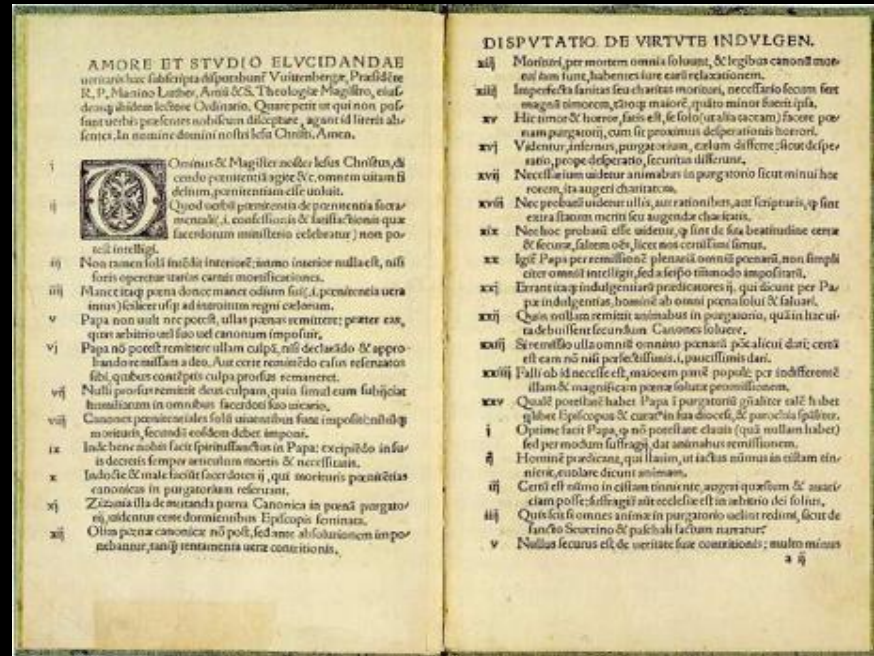 AMORE ET STVDIO ELVCIDANDAE
ueritatis hæc subscripta disputabunť Vuittenbergæ, Præsidēte
R. P. Martino Luther, Artiū & S. Theologiæ Magistro, eius/
demq; ibidem lectore Ordinario. Quare petit ut qui non pos/
sunt uerbis præsentes nobiscum disceptare, agant id literis ab/
sentes. In nomine domini nostri Iesu Christi, Amen.
i DOminus & Magister noster Iesus Christus, di
cendo pœnitentiā agite &c. omnem uitam fi
delium, pœnitentiam esse uoluit.
ij Quod uerbū pœnitentia de pœnitentia sacra/
mentali(.i. confessionis & satisfactionis quæ
sacerdotum ministerio celebratur) non po/
test intelligi.
iij Non tamen solā intēdit interiorē: immo interior nulla est, nisi
foris operetur uarias carnis mortificationes.
iiij Manet itaq; pœna donec manet odium sui(.i. pœnitentia uera
intus) scilicet usq; ad introitum regni cælorum.
v Papa non uult nec potest, ullas pœnas remittere: præter eas,
quas arbitrio uel suo uel canonum imposuit.
vj Papa nō potest remittere ullam culpā, nisi declarādo & appro/
bando remissam a deo. Aut certe remittēdo casus reseruatos
sibi, quibus contēptis culpa prorsus remaneret.
vij Nulli prorsus remittit deus culpam, quin simul eum subijciat
humiliatum in omnibus sacerdoti suo uicario.
viij Canones pœnitentiales solū uiuentibus sunt impositi: nihilq;
morituris, secundū eosdem debet imponi.
ix Inde bene nobis facit spiritussanctus in Papa: excipiēdo in su/
is decretis semper articulum mortis & necessitatis.
x Indocte & male faciūt sacerdotes ij, qui morituris pœnitētias
canonicas in purgatorium reseruant.
xj Zizania illa de mutanda pœna Canonica in pœnā purgato/
rij, uidentur certe dormientibus Episcopis seminata.
xij Olim pœnæ canonicæ nō post, sed ante absolutionem impo/
nebantur, tanq̄ tentamenta ueræ contritionis.
DISPVTATIO DE VIRTVTE INDVLGEN.
xiij Morituri, per mortem omnia soluunt, & legibus canonū mor/
tui iam sunt, habentes iure earū relaxationem.
xiiij Imperfecta sanitas seu charitas morituri, necessario secum fert
magnū timorem, tātoq; maiorē, quāto minor fuerit ipsa.
xv Hic timor & horror, satis est, se solo (ut alia taceam) facere pœ/
nam purgatorij, cum sit proximus desperationis horrori.
xvj Videntur, infernus, purgatorium, cælum differre: sicut despe/
ratio, prope desperatio, securitas differunt.
xvij Necessarium uidetur animabus in purgatorio sicut minui hor
rorem, ita augeri charitatem.
xviij Nec probatū uidetur ullis, aut rationibus, aut scripturis, q̄ sint
extra statum meriti seu augendæ charitatis.
xix Nec hoc probatū esse uidetur, q̄ sint de sua beatitudine certæ
& securæ, saltem oēs, licet nos certissimi simus.
xx Igiť Papa per remissionē plenariā omniū pœnarū, non simpli
citer omniū intelligit, sed a seipso tātūmodo impositarū.
xxj Errant itaq; indulgentiarū prædicatores ij, qui dicunt per Pa/
pæ indulgentias, hominē ab omni pœna solui & saluari.
xxij Quin nullam remittit animabus in purgatorio, quā in hac ui/
ta debuissent secundum Canones soluere.
xxiij Si remissio ulla omniū omnino pœnarū pōt alicui dari; certū
est eam nō nisi perfectissimis .i. paucissimis dari.
xxiiij Falli ob id necesse est, maiorem partē populi: per indifferentē
illam & magnificam pœnæ solutæ promissionem.
xxv Qualē potestatē habet Papa ī purgatoriū gn̄aliter talē habet
quilibet Episcopus & curatus in sua diocesi, & parochia spāliter.
i Optime facit Papa, q̄ nō potestate clauis (quā nullam habet)
sed per modum suffragij, dat animabus remissionem.
ij Hominē prædicant, qui statim, ut iactus nūmus in cistam tin/
nierit, euolare dicunt animam.
iij Certū est nūmo in cistam tinniente, augeri quæstum & auari/
ciam posse; suffragiū aūt ecclesiæ est in arbitrio dei solius.
iiij Quis scit si omnes animæ in purgatorio uelint redimi, sicut de
sancto Seuerino & paschali factum narratur.
v Nullus securus est de ueritate suæ contritionis; multo minus
a ij